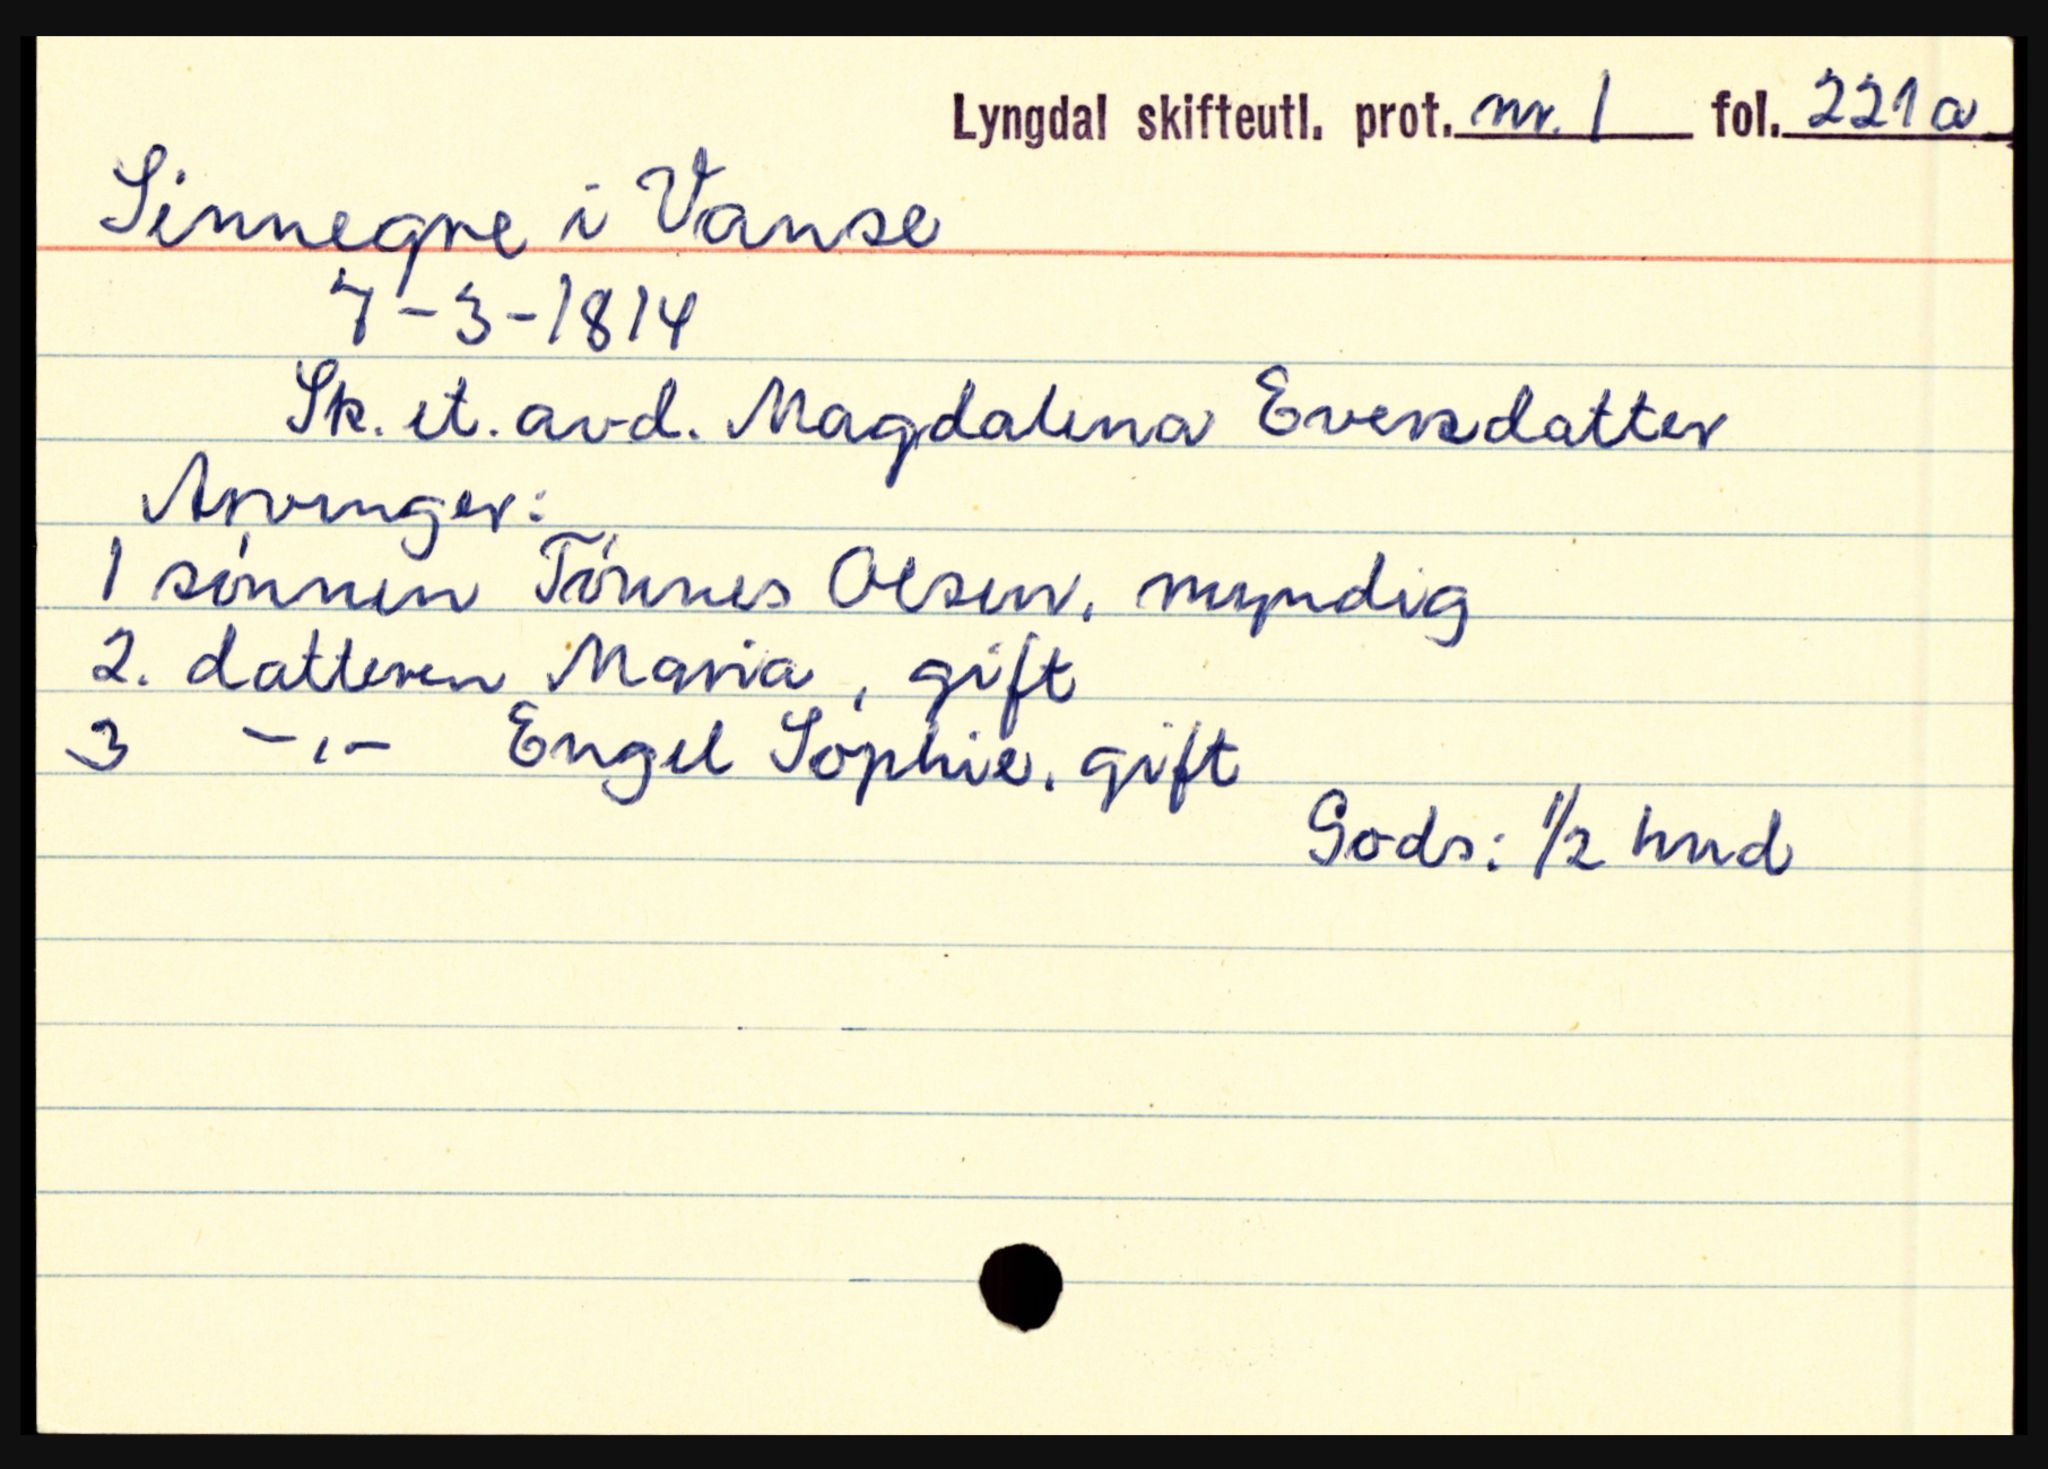 Lyngdal skifteutl. prot. nr. 1 fol. 221a
Sinnegre i Vanse
7-3-1814
Sk. et. avd. Magdalena Eversdatter
Arvinger:
1 sønnen Tønnes Olsen, myndig
2. datteren Maria, gift
3 -,- Engel Sophie, gift
Gods: 1/2 hud